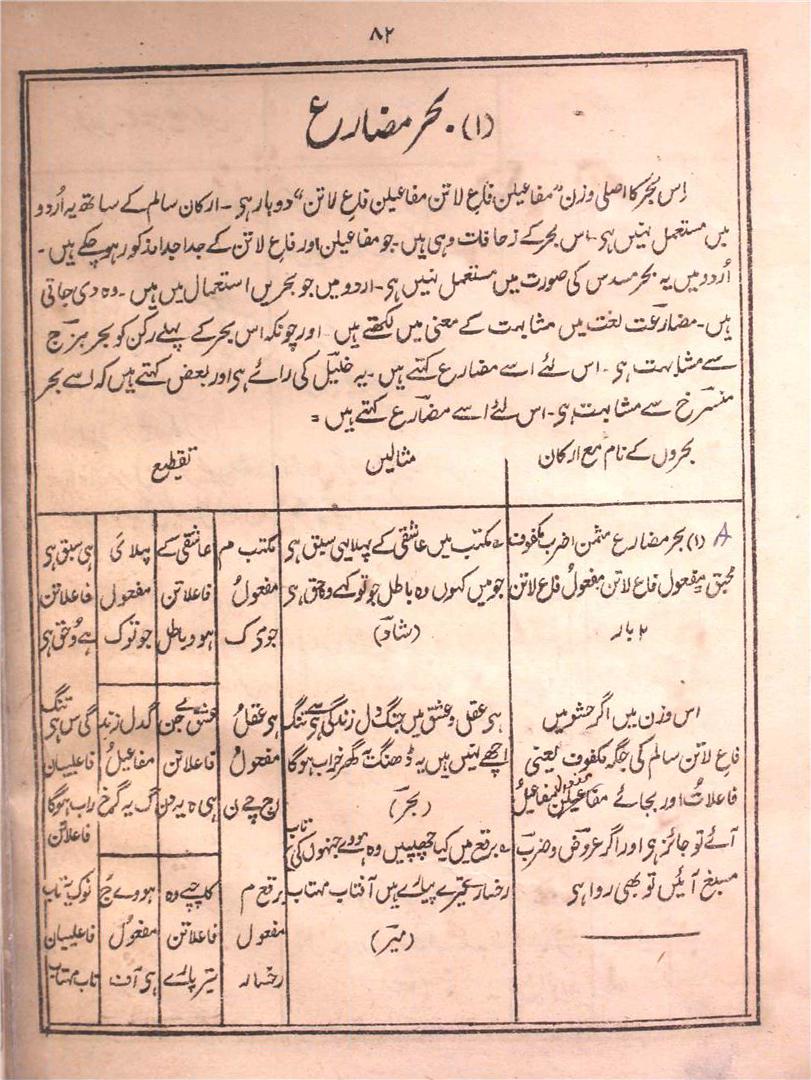 ۸۲
(۱) بحر مضارع
اِس بحر کا اصلی وزن "مفاعیلن فاع لاتن مفاعیلن فاع لاتن" دوبار ہی ۔ ارکان سالم کے ساتھ یہ اُردو
میں مستعمل نہیں ہی۔ اس بحر کے زحافات وہی ہیں۔ جو مفاعیلن اور فاع لاتن کے جدا جدا مذکور ہو چکے ہیں۔
اُردو میں یہ بحر مسدس کی صورت میں مستعمل نہیں ہی۔ اردو میں جو بحریں استعمال میں ہیں ۔ وہ دی جاتی
ہیں۔ مضارعت لغت میں مشابہت کے معنی میں لکھتے ہیں۔ اور چونکہ اس بحر کے پہلے رکن کو بحر ہزج
سے مشابہت ہی ۔ اس لئے اسے مضارع کہتے ہیں۔ یہ خلیل کی رائے ہی اور بعض کہتے ہیں کہ اسے بحر
منسرخ سے مشابہت ہی۔ اس لئے اسے مضارع کہتے ہیں =
بحروں کے نام مع ارکان
مثالیں
تقطیع
A (۱) بحر مضارع مثمن اخرب مکفوف
مخبق مفعول فاع لاتن مفعولُ فاع لاتن
۲ بار
اس وزن میں اگر حشو میں
فاع لاتن سالم کی جگہ مکفوف یعنی
فاعلاتُ اور بجائے مفاعیلن مفاعیلُ
آئے تو جائز ہی اور اگر عروض و ضرب
مسبغ آئیں تو بھی روا ہی
مکتب میں عاشقی کے پہلا یہی سبق ہی
جو میں کہوں وہ باطل جو تو کہے وہ حق ہی
(شاد)
ہی عقل و عشق میں جنگ دل زندگی سے ہی تنگ
اچھے نہیں ہیں یہ ڈھنگ یہ گھر خراب ہوگا
(بحر)
برقع میں کیا چھپیں وہ ہووے جنہوں کی یہ تاب
رخسار تیرے پیارے ہیں آفتاب مہتاب
(میر)
مکتب م | عاشقی کے | پہلا ئ | ہی سبق ہی
مفعولُ | فاعلاتن | مفعول | فاعلاتن
جو می ک | ہو و باطل | جو توک | ہے وُ حق ہی
ہی عقلُ | عشق مے جن | گدل زند | گی س ہی تنگ
مفعولُ | فاعلاتن | مفاعیلُ | فاعلییان
اچ چے ن | ہی ہ یہ دن | گ یہ گرخ | راب ہوگا
فاعلاتن
برقع م | کا چپے وہ | ہووے ج | نوک یہ تاب
مفعول | فاعلاتن | مفعولُ | فاعلییان
رخسار | تیر پارے | ہی آف | تاب مہتاب